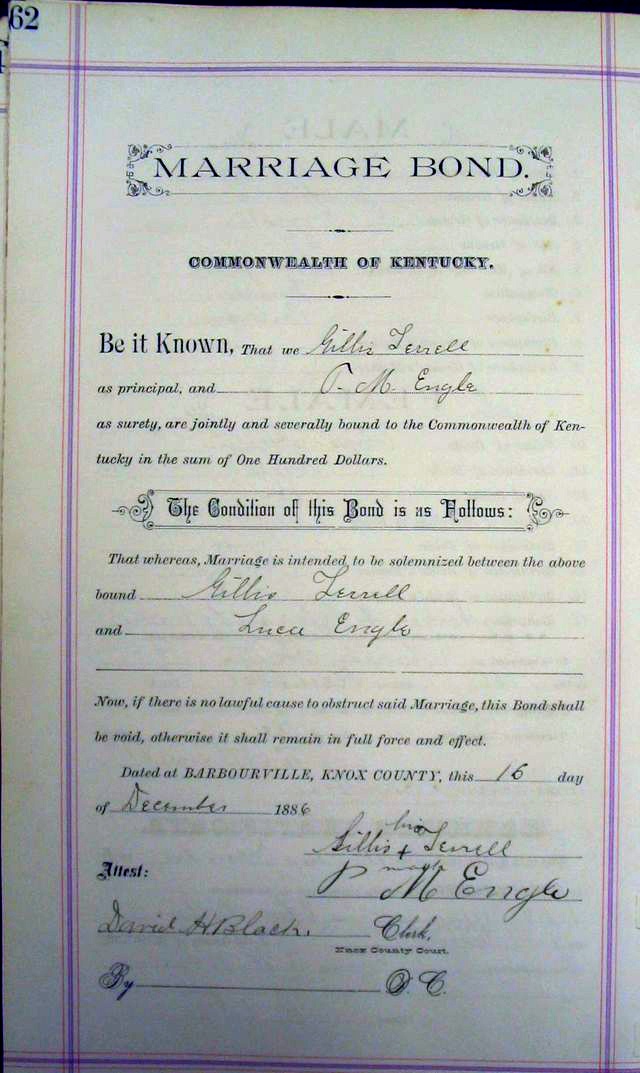 62
MARRIAGE BOND.
COMMONWEALTH OF KENTUCKY.
Be it Known, That we Gillis Terrell
as principal, and P. M. Engle
as surety, are jointly and severally bound to the Commonwealth of Ken-
tucky in the sum of One Hundred Dollars.
The Condition of this Bond is as Follows:
That whereas, Marriage is intended to be solemnized between the above
bound Gillis Terrell
and Luca Engle
Now, if there is no lawful cause to obstruct said Marriage, this Bond shall
be void, otherwise it shall remain in full force and effect.
Dated at BARBOURVILLE, KNOX COUNTY, this 16 day
of December 1886
his
Gillis + Terrell
mark
Attest: P M Engle
David H Black, Clerk,
Knox County Court.
By D. C.